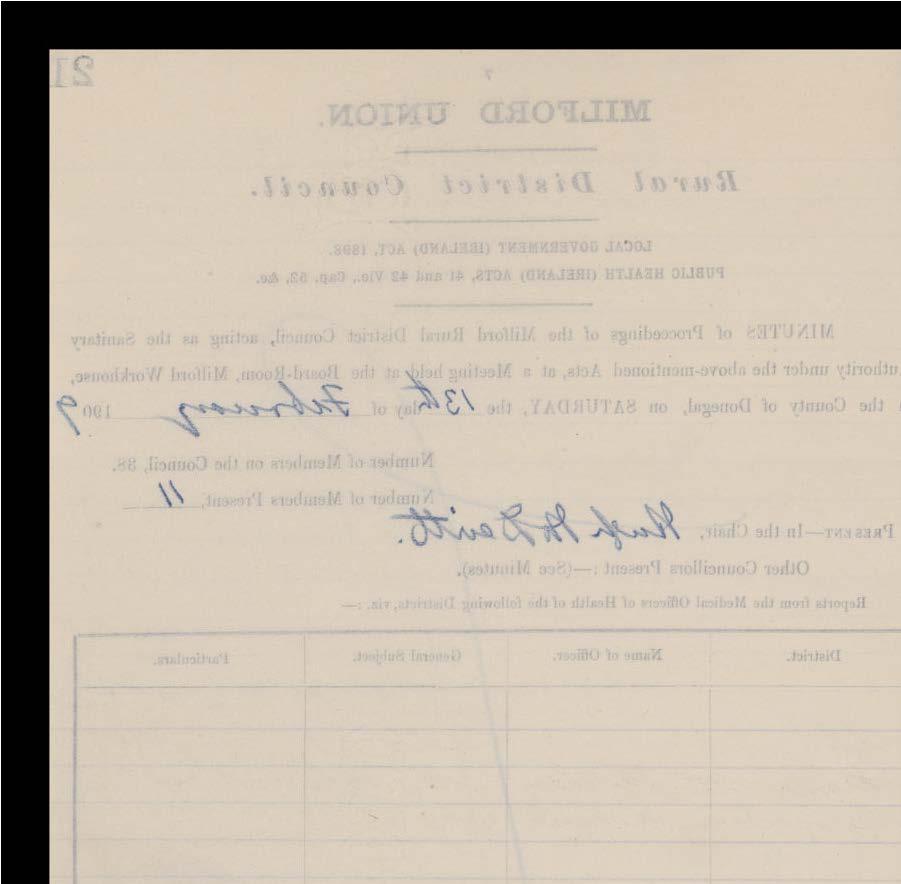 21
7
MILFORD UNION.
Rural District Council.
LOCAL GOVERNMENT (IRELAND) ACT, 1898.
PUBLIC HEALTH (IRELAND) ACTS, 41 and 42 Vic., Cap. 52, &c.
MINUTES of Proceedings of the Milford Rural District Council, acting as the Sanitary
uthority under the above-mentioned Acts, at a Meeting held at the Board-Room, Milford Workhouse,
the County of Donegal, on SATURDAY, the 13th day of February 1909
Number of Members on the Council, 38.
Number of Members Present, 11
PRESENT—In the Chair, Hugh McDevitt.
Other Councillors Present :—(See Minutes).
Reports from the Medical Officers of Health of the following Districts, viz. :—
District. Name of Officer. General Subject. Particulars.